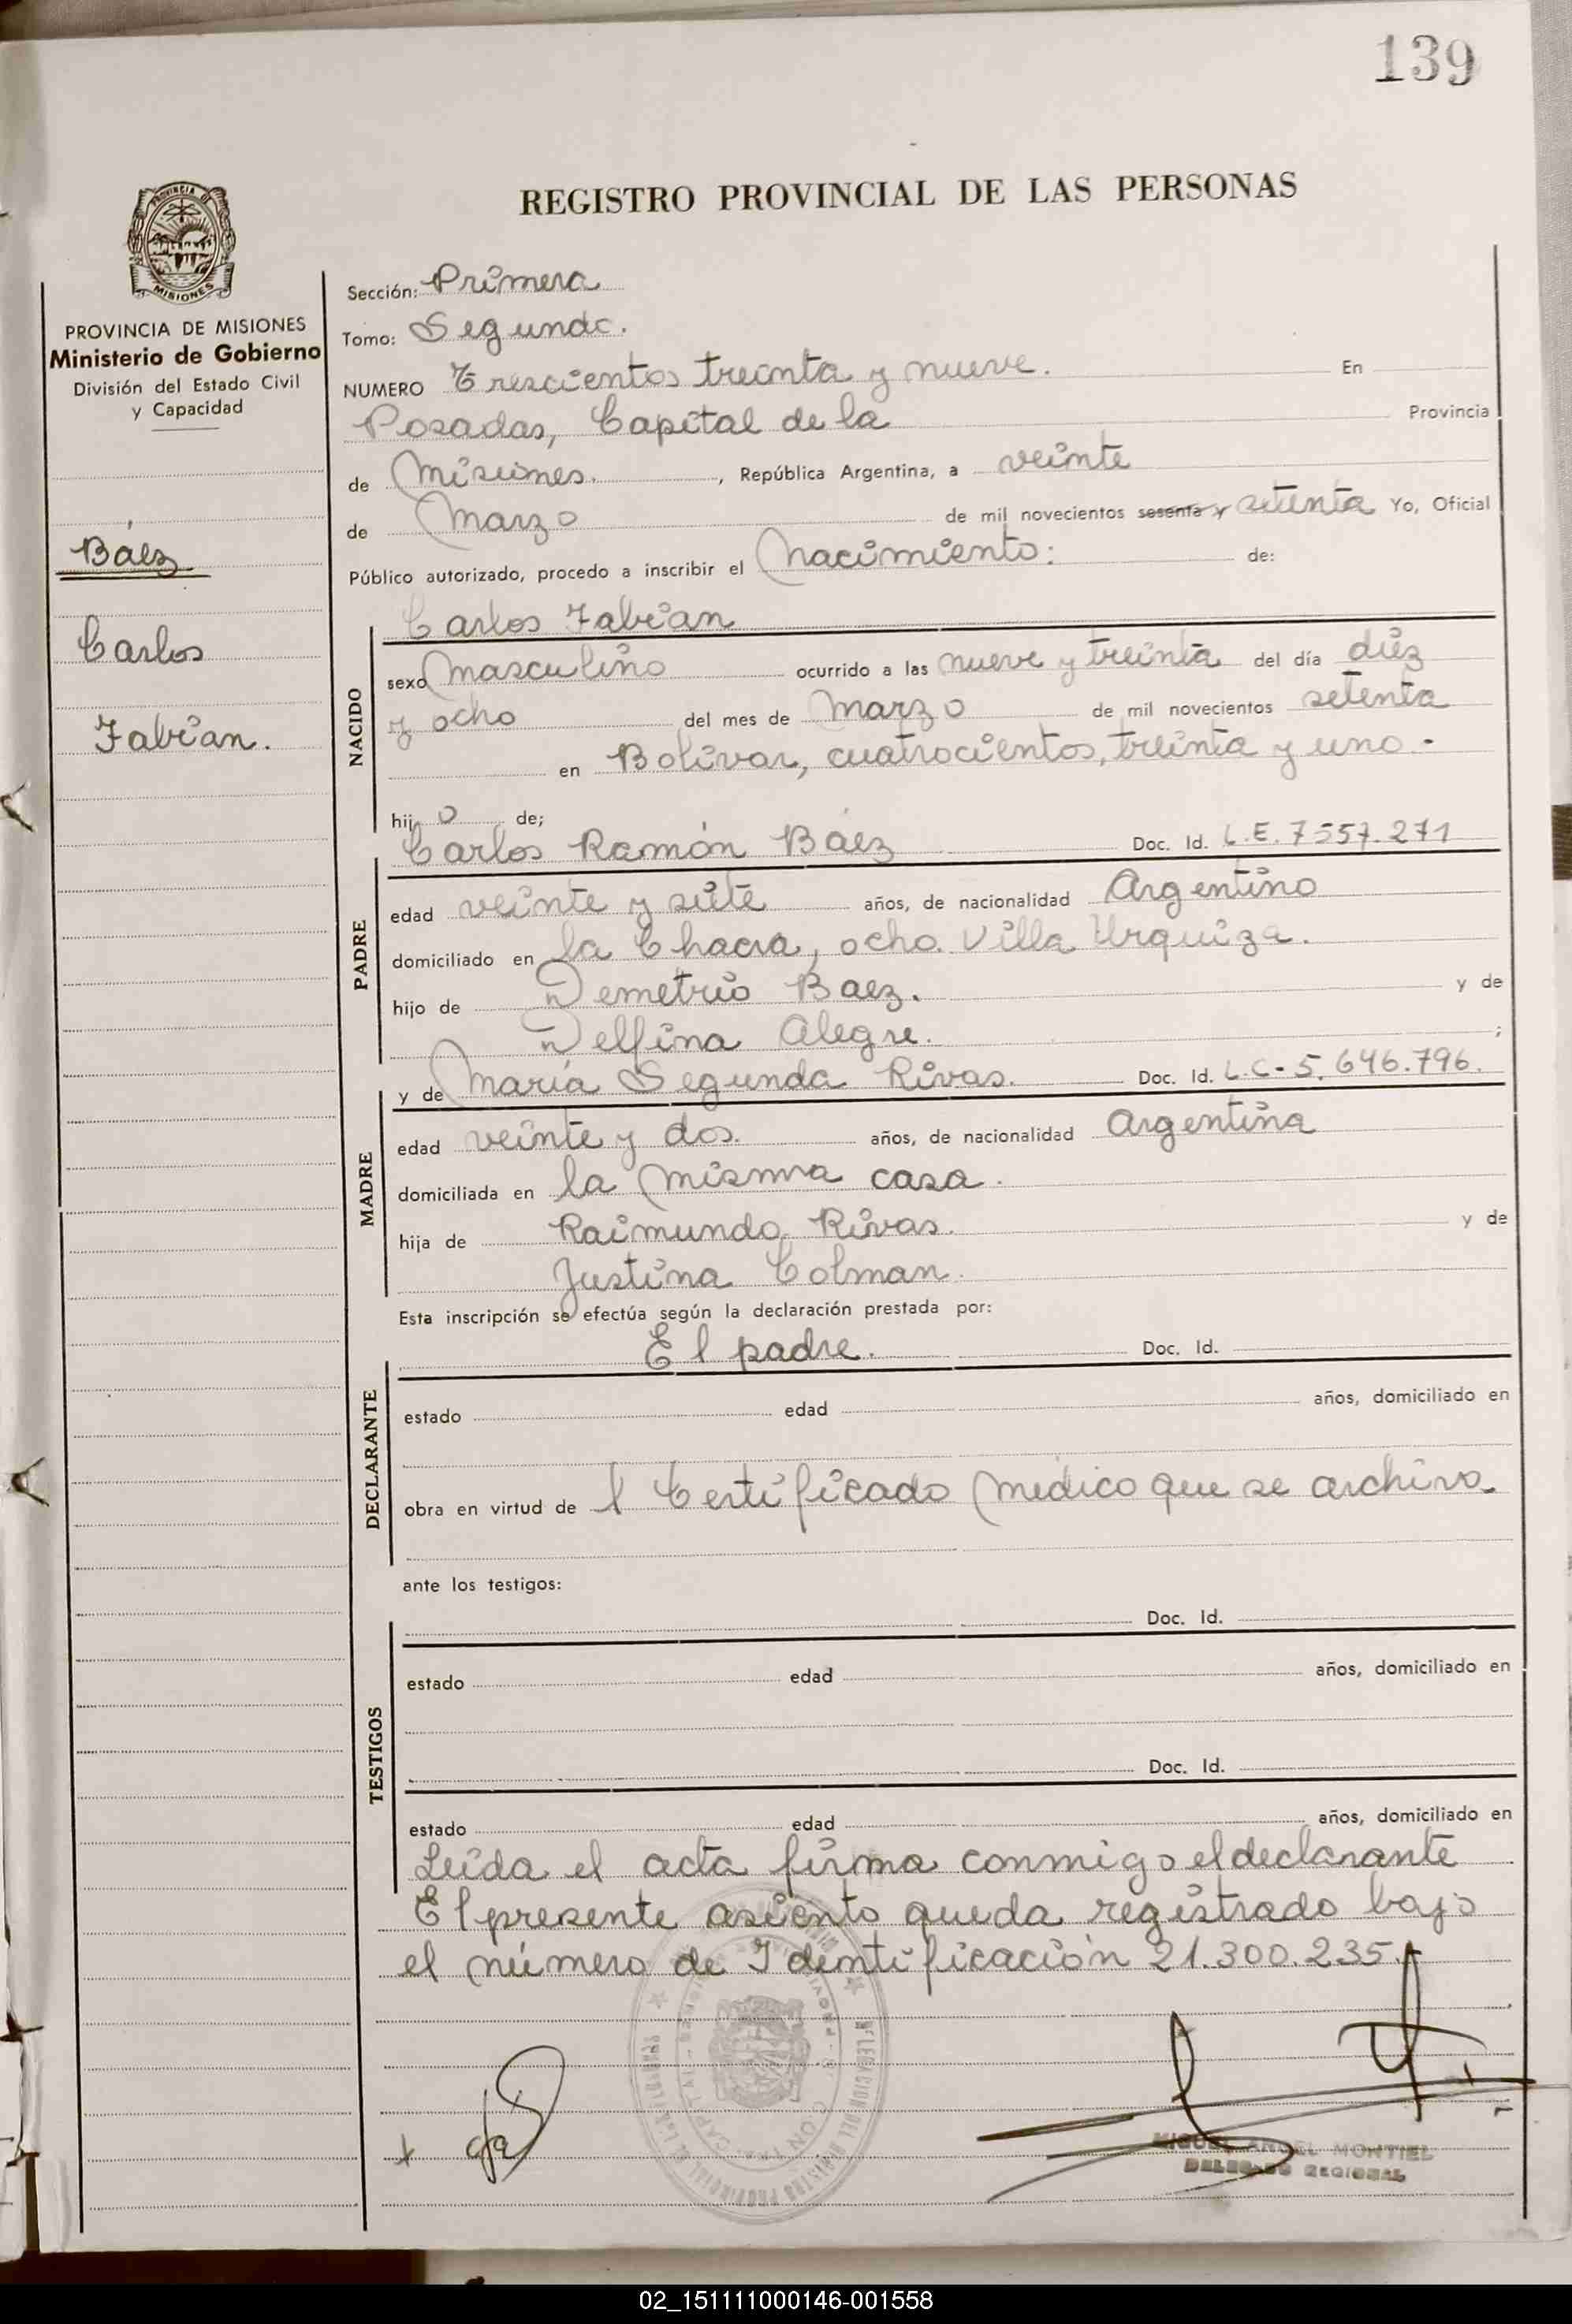 139
REGISTRO PROVINCIAL DE LAS PERSONAS
PROVINCIA DE MISIONES
Ministerio de Gobierno
División del Estado Civil
y Capacidad
Báez
Carlos
Fabian.
Sección: Primera
Tomo: Segundo.
NUMERO Trescientos treinta y nueve. En
Posadas, Capital de la Provincia
de Misiones. , República Argentina, a veinte
de Marzo de mil novecientos sesenta y setenta Yo, Oficial
Público autorizado, procedo a inscribir el Nacimiento: de:
NACIDO
Carlos Fabian
sexo Masculino ocurrido a las nueve y treinta del día diez
y ocho del mes de Marzo de mil novecientos setenta
en Bolívar, cuatrocientos, treinta y uno.-
hij o de;
PADRE
Carlos Ramón Báez Doc. Id. L.E. 7557.271
edad veinte y siete años, de nacionalidad Argentino
domiciliado en la Chacra, ocho. Villa Urquiza.
hijo de Demetrio Baez. y de
Delfina Alegre. ;
MADRE
y de María Segunda Rivas. Doc. Id. L.C-5.646.796.
edad veinte y dos. años, de nacionalidad Argentina
domiciliada en la misma casa.
hija de Raimundo Rivas. y de
Justina Colman.
Esta inscripción se efectúa según la declaración prestada por:
DECLARANTE
El padre. Doc. Id.
estado edad años, domiciliado en
obra en virtud de l Certificado Médico que se archiva
ante los testigos:
TESTIGOS
Doc. Id.
estado edad años, domiciliado en
Doc. Id.
estado edad años, domiciliado en
Leída el acta firma conmigo el declarante
El presente asiento queda registrado bajo
el número de Identificación 21.300.235.
MIGUEL ANGEL MONTIEL
DELEGADO REGIONAL
02_151111000146-001558